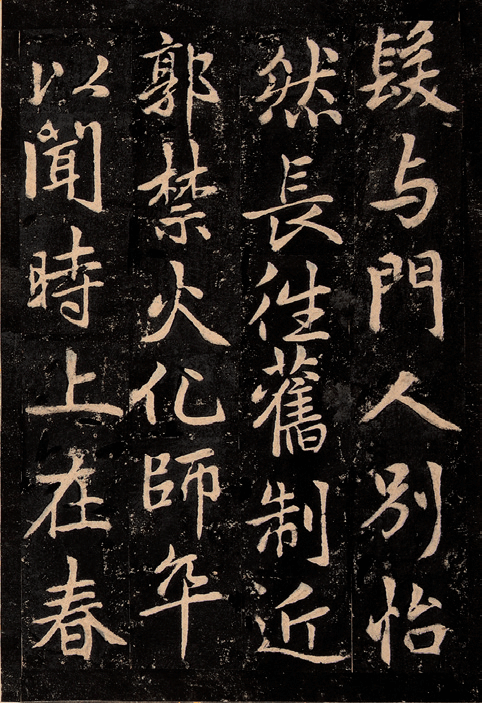 髮与門人別怡
然長徃舊制近
郭禁火化師卒
以聞時上在春